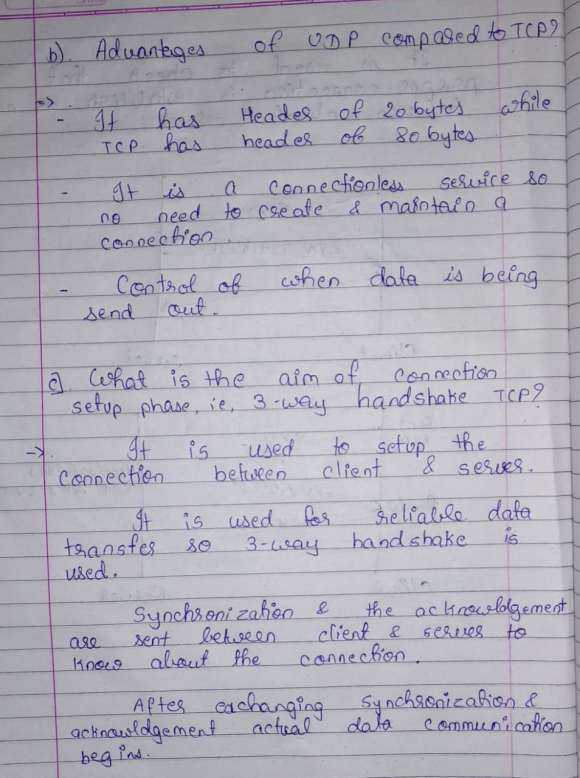 b). Advantages of UDP compared to TCP?
=> - It has Header of 20 bytes while
TCP has header of 80 bytes
- It is a connectionless service so
no need to create & maintain a
connection.
- Control of when data is being
send out.
c). What is the aim of connection
setup phase, ie, 3-way handshake TCP?
->. It is used to setup the
Connection between client & server.
It is used for reliable data
transfer so 3-way handshake is
used.
Synchronization & the acknowldgement
are sent between client & server to
know about the connection.
After exchanging synchronization &
acknowldgement actual data communication
begins.